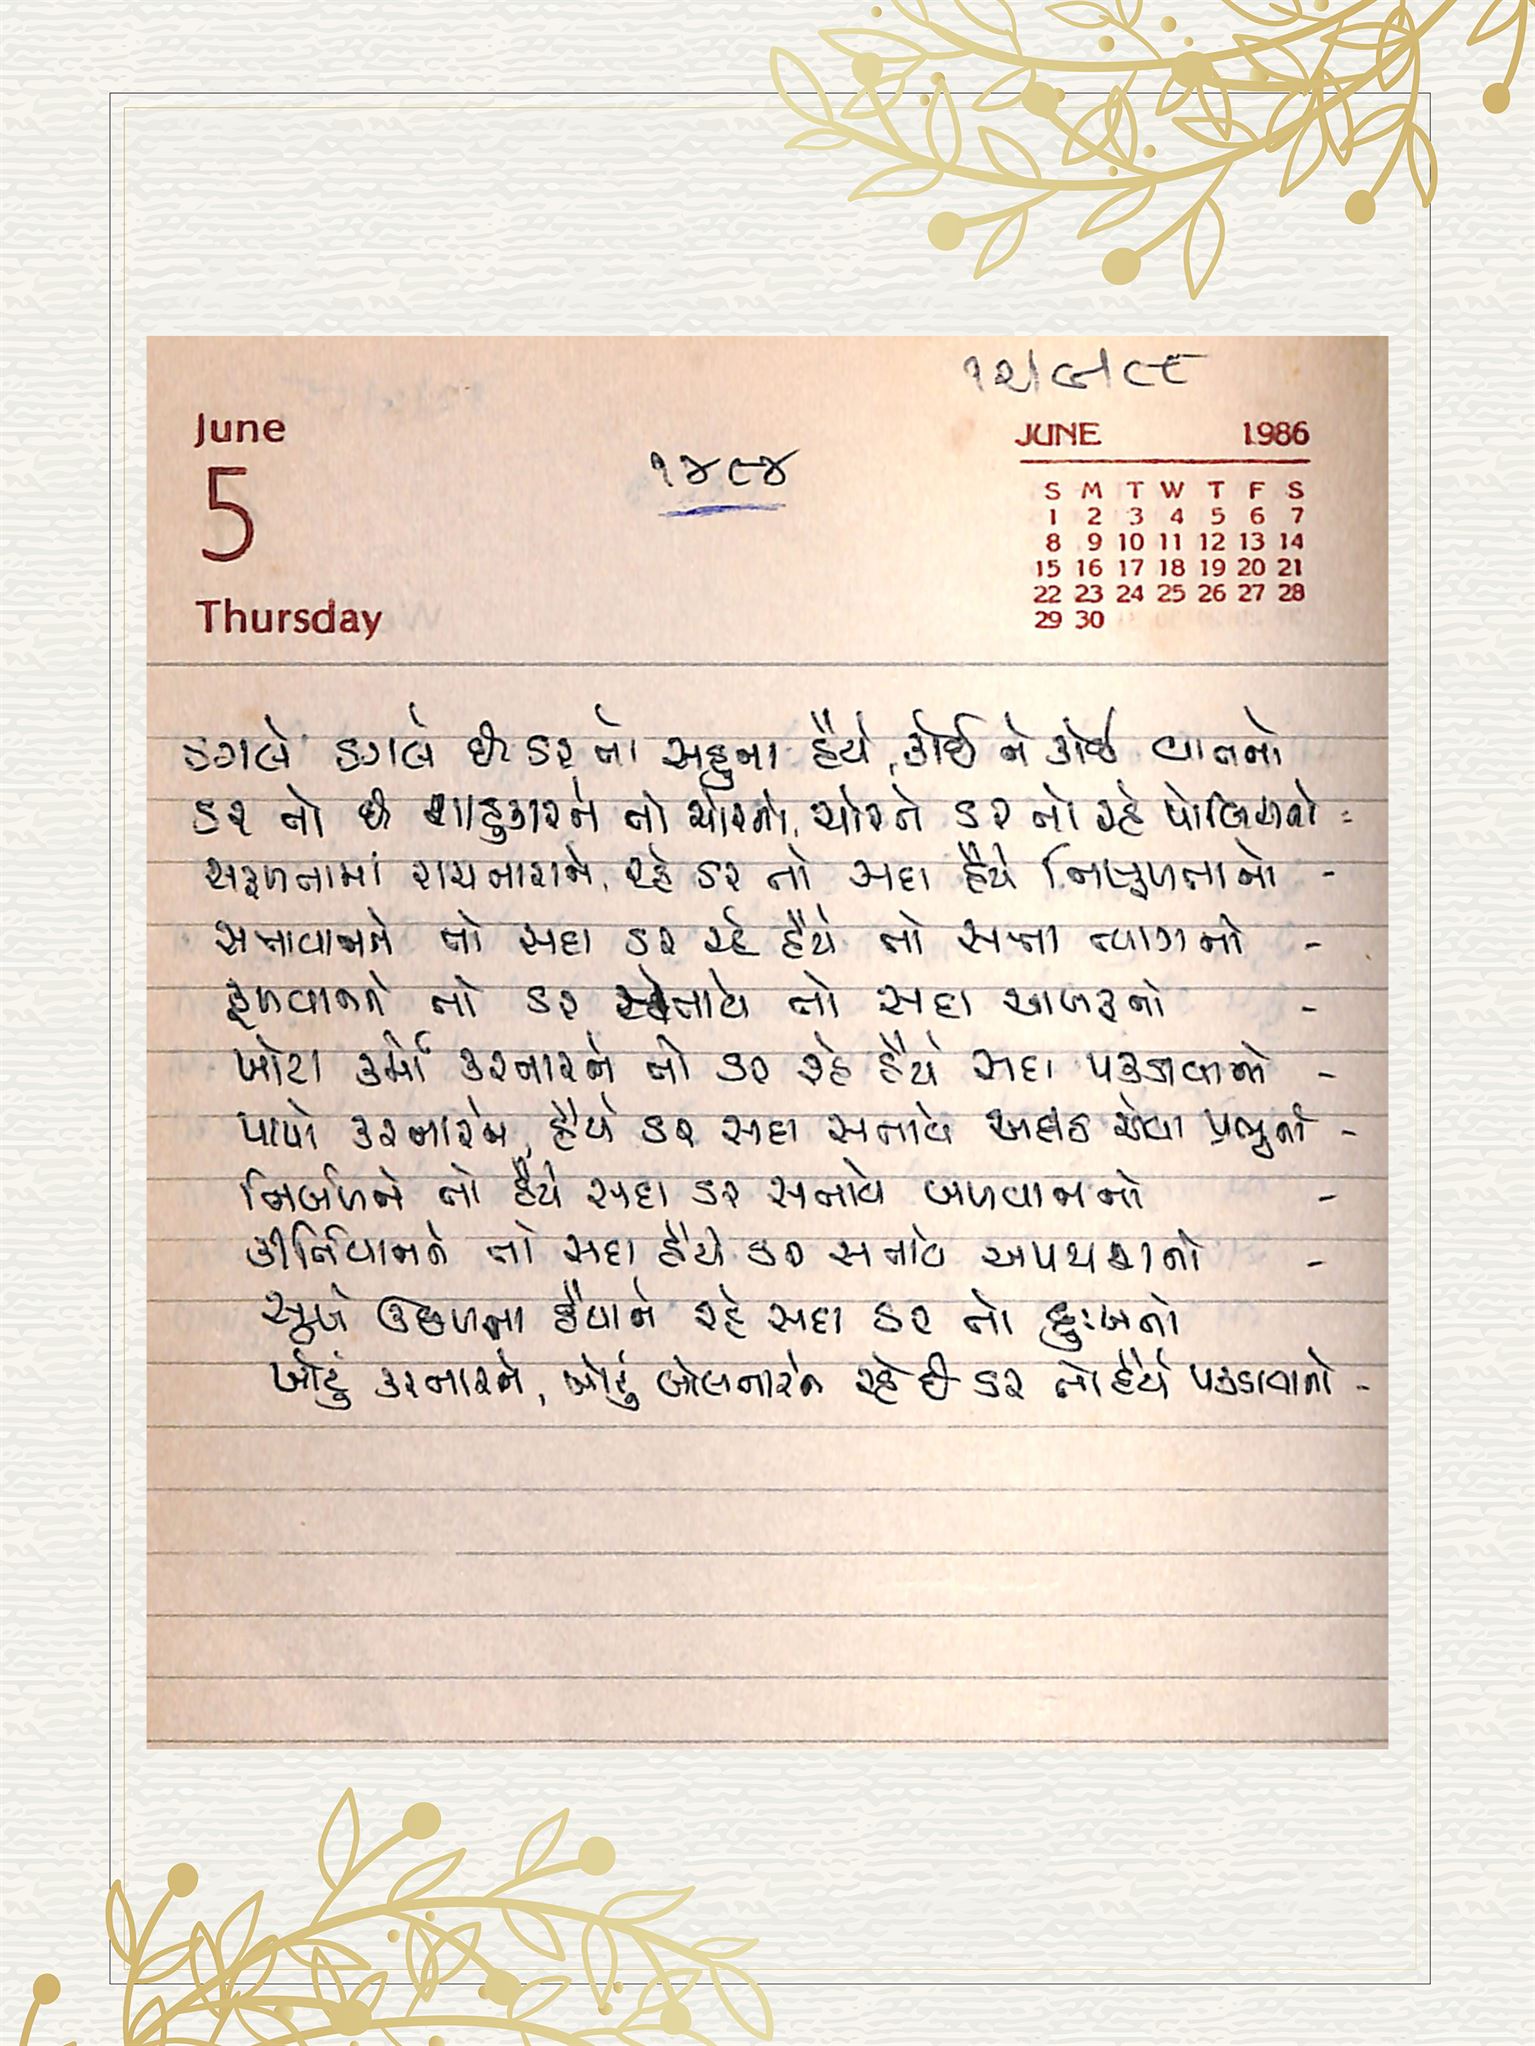 ૧૨/૯/૮૮
June
5
Thursday
૧૪૮૪
JUNE 1986
S M T W T F S
1 2 3 4 5 6 7
8 9 10 11 12 13 14
15 16 17 18 19 20 21
22 23 24 25 26 27 28
29 30
ડગલે ડગલે છે ડર તો સહુના હૈયે, કોઈ ને કોઈ વાતનો
ડર તો છે શાહુકારને તો ચોરનો, ચોરને ડર તો રહે પોલિસનો =
સફળતામાં રાચનારાને, રહે ડર તો સદા હૈયે નિષ્ફળતાનો -
સત્તાવાનને તો સદા ડર રહે હૈયે તો સત્તા ત્યાગનો -
કૂળવાનને તો ડર સતાવે તો સદા આબરૂનો -
ખોટા કર્મો કરનારને તો ડર રહે હૈયે સદા પકડાવાનો -
પાપો કરનારને, હૈયે ડર સદા સતાવે અદીઠ એવા પ્રભુનો -
નિર્બળને તો હૈયે સદા ડર સતાવે બળવાનનો -
કીર્તિવાનને તો સદા હૈયે ડર સતાવે અપયશનો -
સુખે ઉછળતા હૈયાને રહે સદા ડર તો દુઃખનો
ખોટું કરનારને, ખોટું બોલનારને રહે છે ડર તો હૈયે પકડાવાનો -